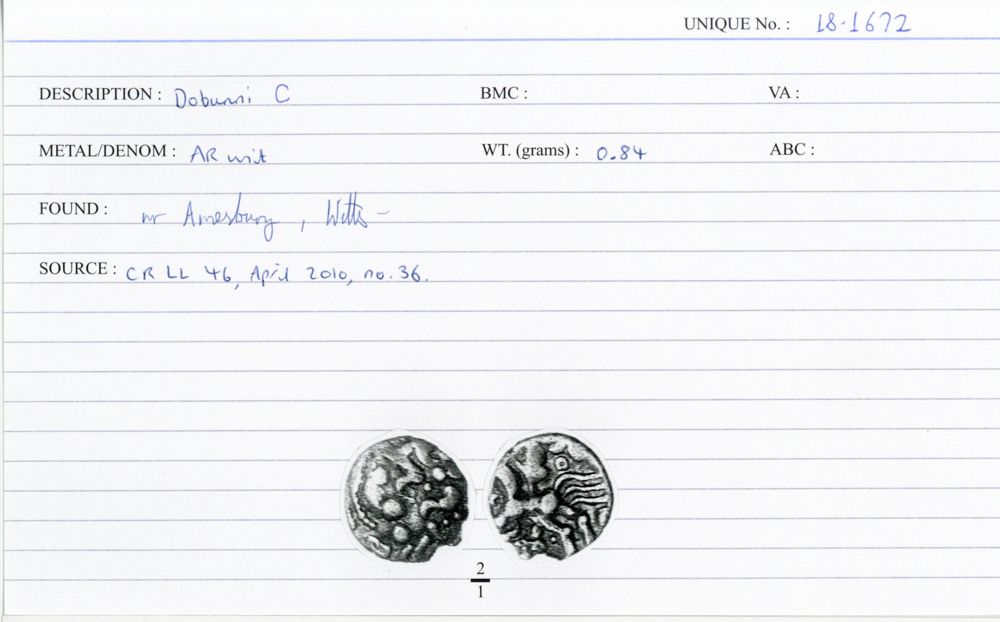 UNIQUE No. : 18.1672
DESCRIPTION : Dobunni C BMC : VA :
METAL/DENOM : AR unit WT. (grams) : 0.84 ABC :
FOUND : nr Amesbury, Wilts –
SOURCE : CR LL 46, April 2010, no. 36.
2
1